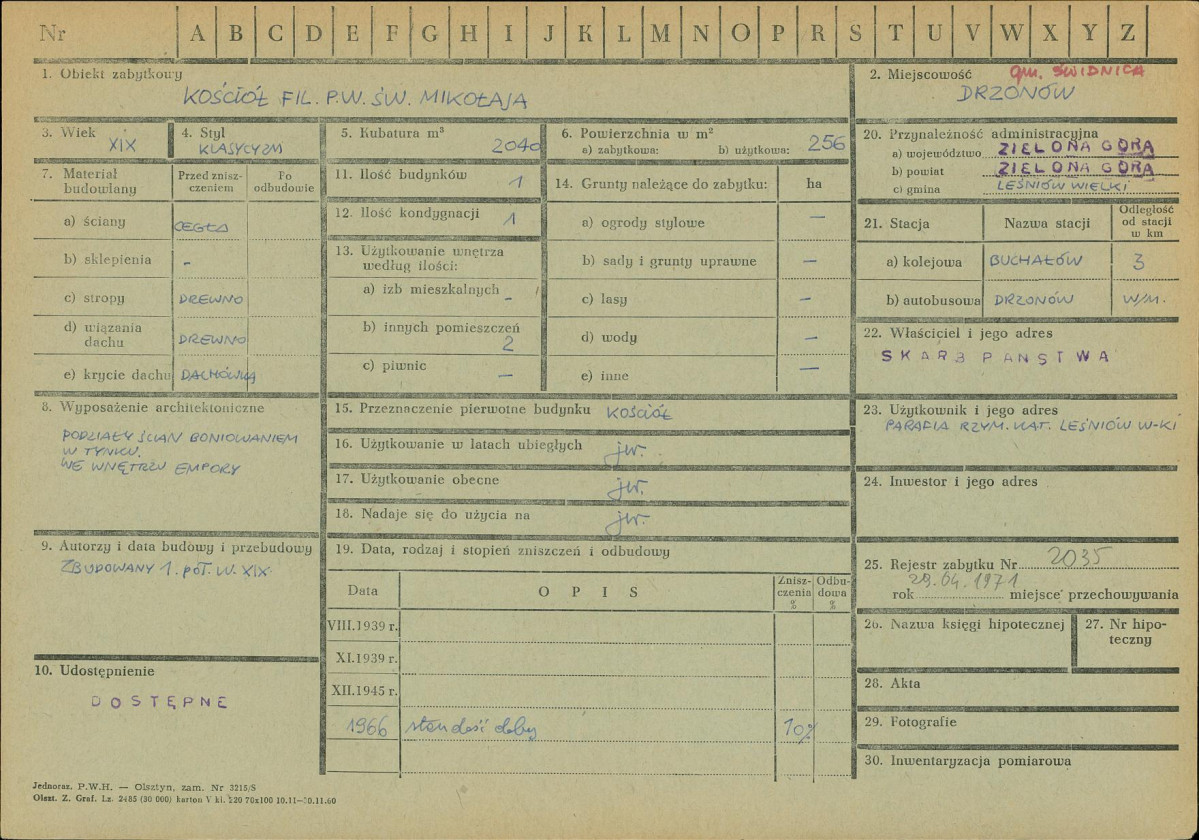 Nr A B C D E F G H I J K L M N O P R S T U V W X Y Z
1. Obiekt zabytkowy
KOŚCIÓŁ FIL. P.W. ŚW. MIKOŁAJA
2. Miejscowość gm. ŚWIDNICA
DRZONÓW
3. Wiek
XIX
4. Styl
KLASYCYZM
5. Kubatura m³
2040
6. Powierzchnia w m²
a) zabytkowa: b) użytkowa: 256
20. Przynależność administracyjna
a) województwo ZIELONA GÓRA
b) powiat ZIELONA GÓRA
c) gmina LEŚNIÓW WIELKI
7. Materiał budowlany
Przed zniszczeniem
Po odbudowie
a) ściany CEGŁA
b) sklepienia -
c) stropy DREWNO
d) wiązania dachu DREWNO
e) krycie dachu DACHÓWKA
11. Ilość budynków 1
12. Ilość kondygnacji 1
13. Użytkowanie wnętrza
według ilości:
a) izb mieszkalnych -
b) innych pomieszczeń
2
c) piwnic —
14. Grunty należące do zabytku: ha
a) ogrody stylowe —
b) sady i grunty uprawne —
c) lasy —
d) wody —
e) inne —
21. Stacja Nazwa stacji Odległość od stacji w km
a) kolejowa BUCHAŁÓW 3
b) autobusowa DRZONÓW W/M.
22. Właściciel i jego adres
SKARB PAŃSTWA
8. Wyposażenie architektoniczne
PODZIAŁY ŚCIAN BONIOWANIEM
W TYNKU.
WE WNĘTRZU EMPORY
15. Przeznaczenie pierwotne budynku KOŚCIÓŁ
16. Użytkowanie w latach ubiegłych jw.
17. Użytkowanie obecne jw.
18. Nadaje się do użycia na jw.
23. Użytkownik i jego adres
PARAFIA RZYM. KAT. LEŚNIÓW W-KI
24. Inwestor i jego adres
9. Autorzy i data budowy i przebudowy
ZBUDOWANY 1. POŁ. W. XIX.
19. Data, rodzaj i stopień zniszczeń i odbudowy
Data O P I S Zniszczenia % Odbudowa %
VIII.1939 r.
XI.1939 r.
XII.1945 r.
1966 stan dość dobry 10%
25. Rejestr zabytku Nr 2035
29.04.1971
rok miejsce przechowywania
26. Nazwa księgi hipotecznej
27. Nr hipoteczny
28. Akta
29. Fotografie
30. Inwentaryzacja pomiarowa
10. Udostępnienie
DOSTĘPNE
Jednoraz. P.W.H. — Olsztyn, zam. Nr 3215/S
Olszt. Z. Graf. Lz. 2485 (30 000) karton V kl. 220 70x100 10.11—30.11.60